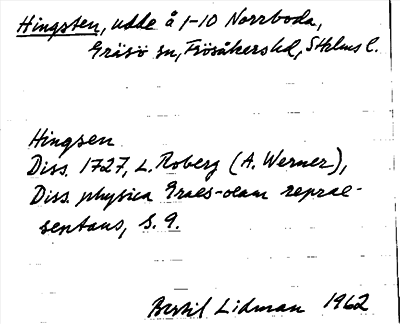 Hingsten, udde å 1-10 Norrboda,
Gräsö sn, Frösåkers hd, Sthlms l.
Hingsen
Diss. 1727, L. Roberg (A. Werner),
Diss. physica Graes-oeam reprae-
sentans, s. 9.
Bertil Lidman 1962